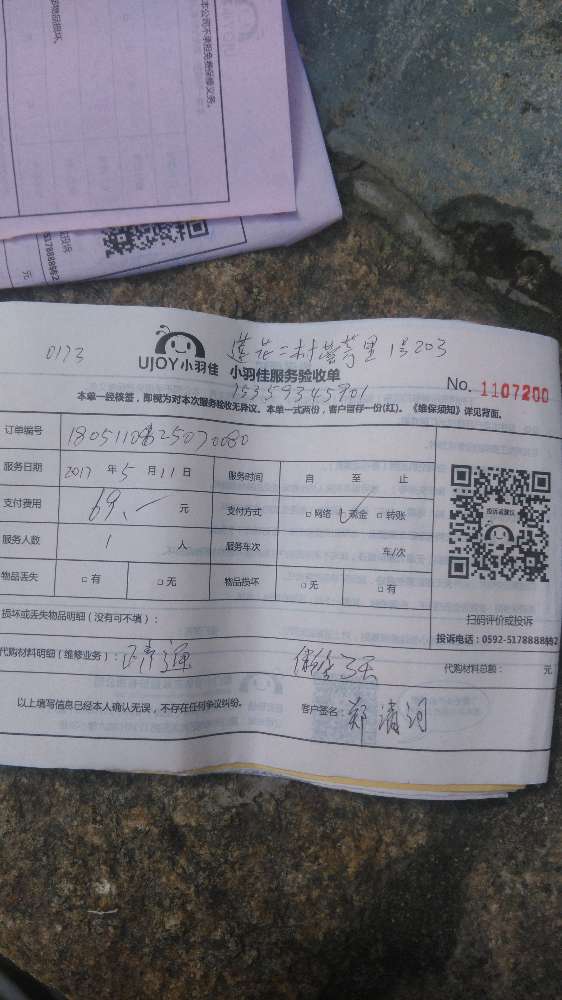 本公司不承担免费保修义务。
物品损坏、
元
0173
莲花二村营芳里1号203
UJOY小羽佳 小羽佳服务验收单
15359345901
No. 1107200
本单一经核签，即视为对本次服务验收无异议。本单一式两份，客户留存一份(红)。《维保须知》详见背面。
订单编号
服务日期 2017 年 5 月 11 日 服务时间 自 至 止
支付费用 69.- 元 支付方式 □ 网络 ✓ 现金 □ 转账
服务人数 1 人 服务车次 车/次
物品丢失 □ 有 □ 无 物品损坏 □ 无 □ 有
投诉或建议
扫码评价或投诉
投诉电话：0592-5178888转2
损坏或丢失物品明细（没有可不填）：
代购材料明细（维修业务）： 代购材料总额： 元
以上填写信息已经本人确认无误，不存在任何争议纠纷。 客户签名：郑清河